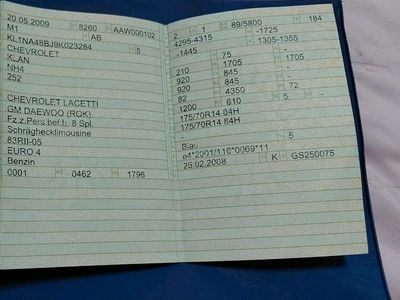 20.05.2009 8260 AAW000102
M1 AB
KL1NA48BJ9K023284 5
CHEVROLET
KLAN
NH4
252
CHEVROLET LACETTI
GM DAEWOO (ROK)
Fz.z.Pers.bef.b. 8 Spl.
Schräghecklimousine
83RII-05
EURO 4
Benzin
0001 0462 1796
2 1 89/5800 184
4295-4315 -1725
-1445 1305-1355
75 -
210 1705 1705
920 845 -
920 845 -
82 4350 72
1200 610 5 -
175/70R14 84H
175/70R14 84H
- 5
e4*2001/116*0069*11
25.02.2008 K GS250075